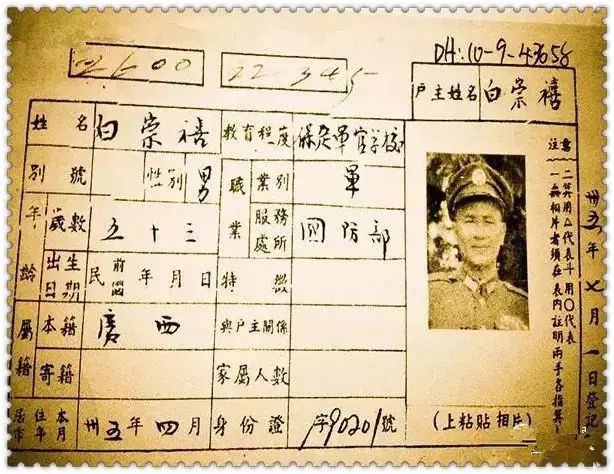 DH:10-9-43658
2600
22-345
戶主姓名 白崇禧
姓名 白崇禧 教育程度 保定軍官學校
別號 性別 男 職業 業別 軍
年齡 歲數 五十三 服務處所 國防部
出生日期 民前國 年月日 特徵
屬籍 本籍 廣西 與戶主關係
寄籍 家屬人數
居住本市年月 卅五年四月 身份證 字90201號
注意
一無相片者須在表內註明兩手各指箕斗
二箕用△代表斗用〇代表
(上粘貼相片)
卅五年七月一日登記